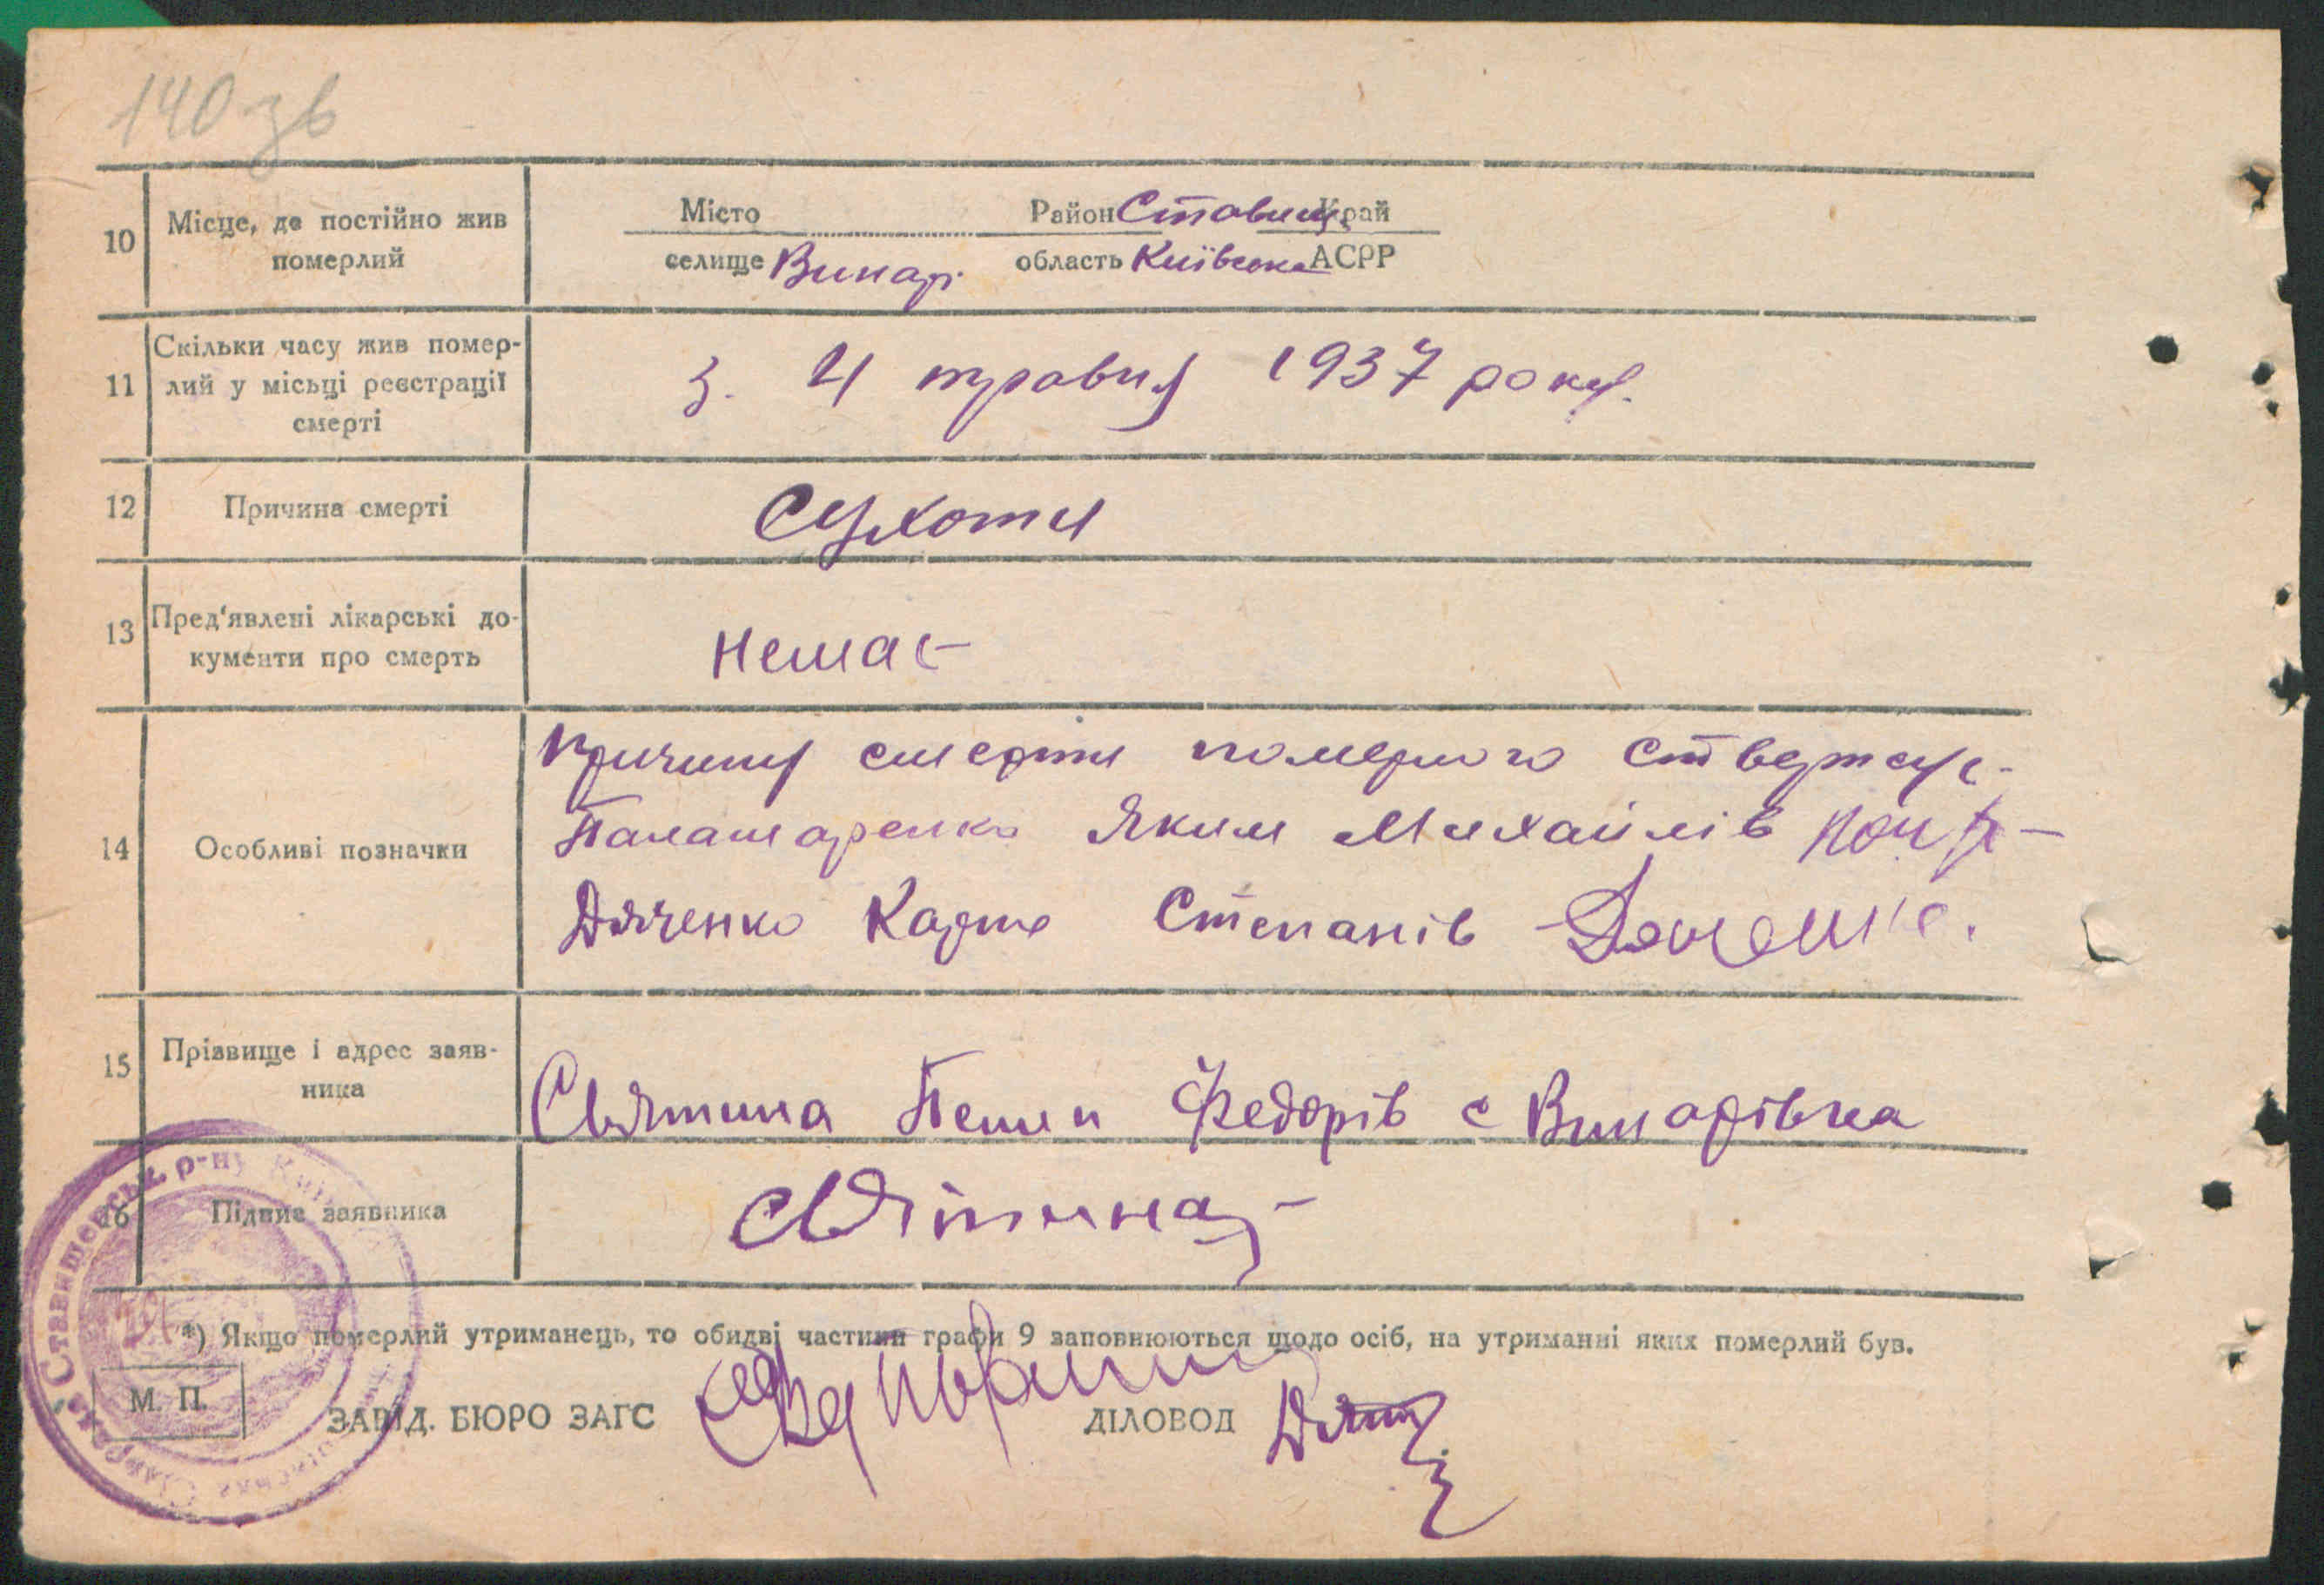 140 зв
10 Місце, де постійно жив померлий
Місто Район Ставищ. Край
селище Винар. область Київська АСРР
11 Скільки часу жив помер-
лий у місьці реєстрації
смерті
з. 4 травня 1937 року.
12 Причина смерті
Сухоти
13 Пред'явлені лікарські до-
кументи про смерть
немає
14 Особливі позначки
причину смерти померлого ствержує.
Яким Михайлів
Дяченко Карпо Степанів
15 Прізвище і адрес заяв-
ника
Святина Федорів с Винарівка
16 Підпис заявника
*) Якщо померлий утриманець, то обидві частини графи 9 заповнюються щодо осіб, на утриманні яких померлий був.
М. П.
ЗАВІД. БЮРО ЗАГС ДІЛОВОД
Ставищеськ. р-ну